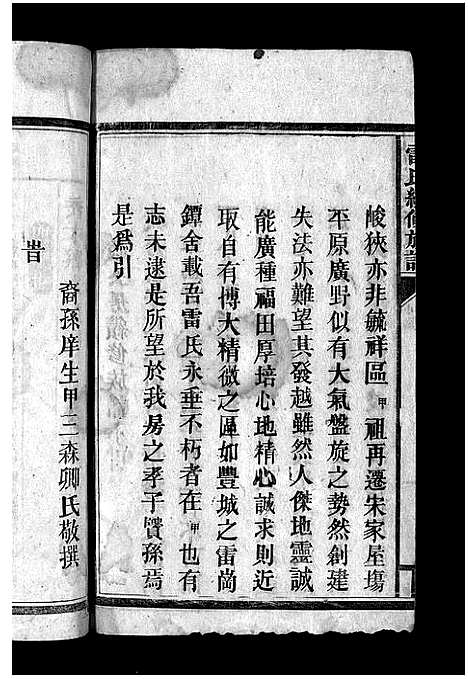 雷氏續修族譜
峻狹亦非毓祥區甲祖再遷宋家屋塲
平原廣野似有大氣盤旋之勢然創建
失法亦難望其發越雖然人傑地靈誠
能廣種福田厚培心地精心誠求則近
取自有博大精微之區如豐城之雷崗
鐔舍載吾雷氏永垂不朽者在甲也有
志未逮是所望於我房之孝子賢孫焉
是爲引
裔孫庠生甲三森卿氏敬撰
昔